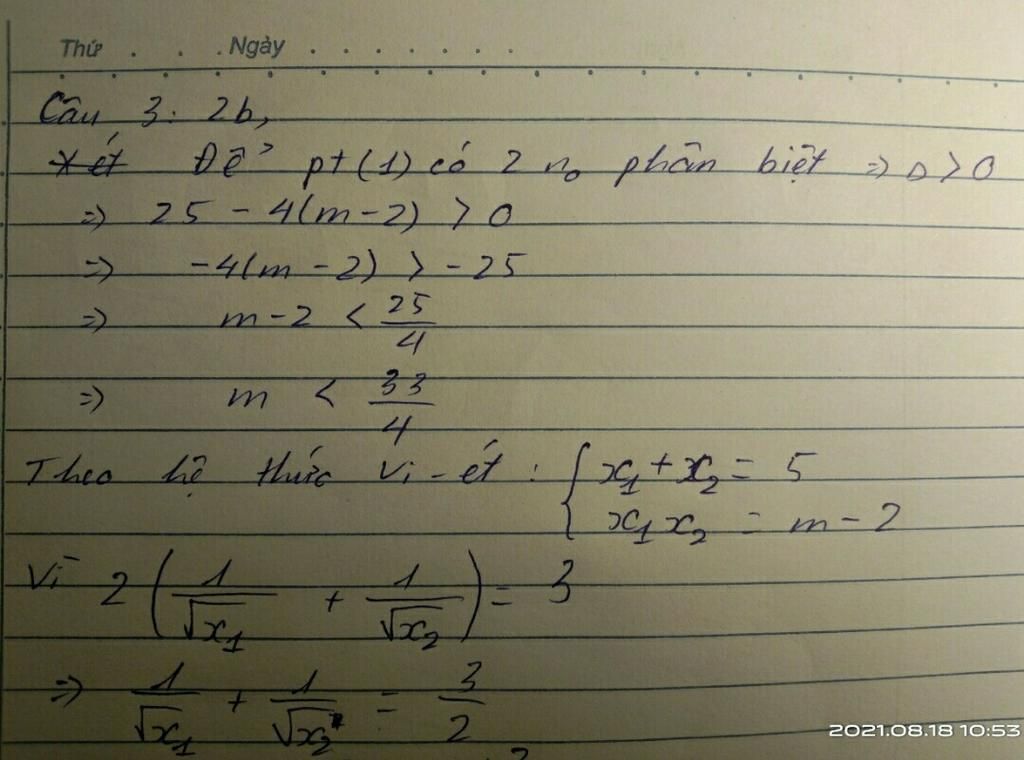 Thứ . . . . Ngày . . . . . . . .
Câu 3: 2b,
Xét Để pt (1) có 2 no phân biệt => Δ > 0
=> 25 - 4(m-2) > 0
=> -4(m-2) > -25
=> m-2 < 25/4
=> m < 33/4
Theo hệ thức Vi-ét : { x₁ + x₂ = 5
x₁x₂ = m-2
Vì 2(1/√x₁ + 1/√x₂) = 3
=> 1/√x₁ + 1/√x₂ = 3/2
2021.08.18 10:53